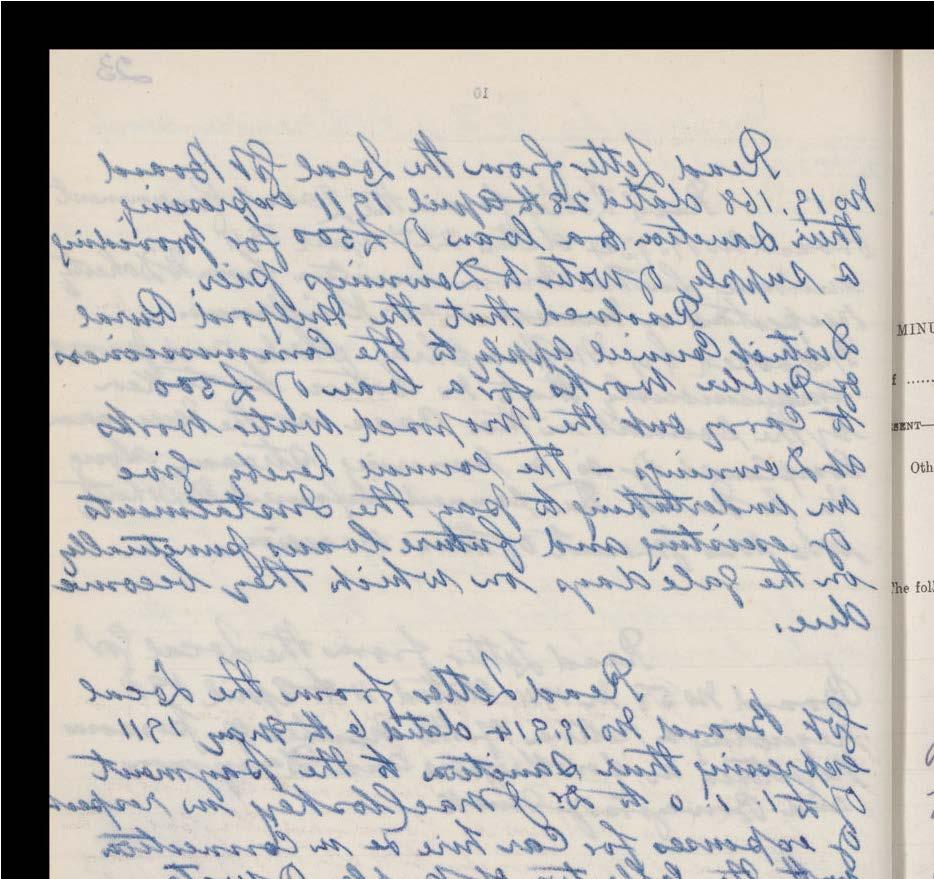 23
10
Read Letter from the Local Gvt Board
No 19.168 dated 28th April 1911 expressing
their sanction to a loan of £500 for providing
a supply of water to Downings Pier.
Resolved that the Milford Rural
District Council apply to the Commissioners
of Public Works for a loan of £500
to Carry out the proposed Water Works
at Downings – The Council hereby give
an undertaking to pay the Instalments
of existing and future loans punctually
on the gale days on which they become
due.
Read Letter from the Local
Gvt Board No 19.914 dated 6th May 1911
expressing their sanction to the payment
of £1.1.0 to Dr J MacCloskey in respect
of expenses for Car hire &c in Connection
MINU
f ......
SENT—
Oth
The foll